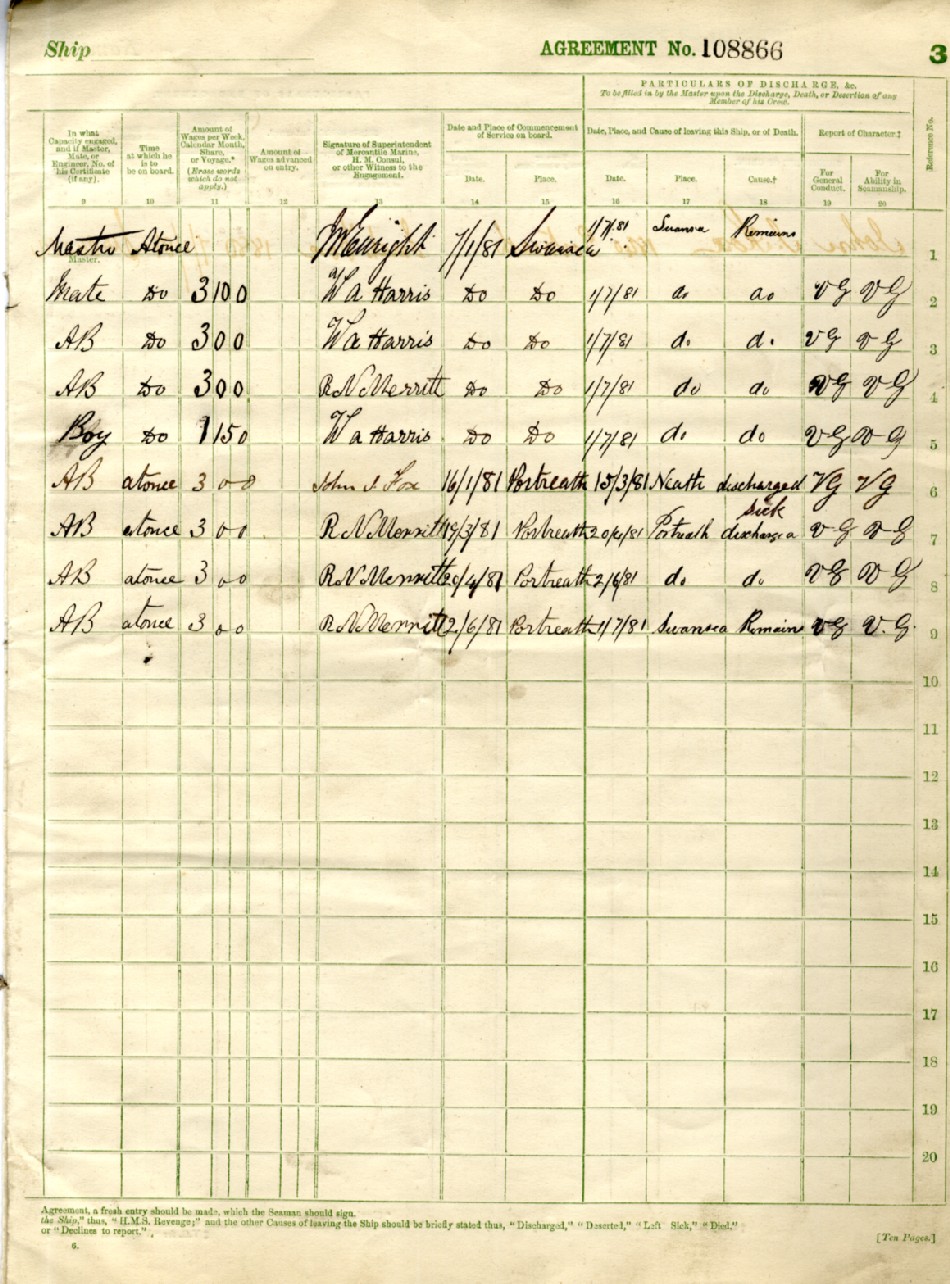 Ship
AGREEMENT No. 108866
3
PARTICULARS OF DISCHARGE, &c.
To be filled in by the Master upon the Discharge, Death, or Desertion of any
Member of his Crew.
In what Capacity engaged, and if Master, Mate, or Engineer, No. of his Certificate (if any).
Time at which he is to be on board.
Amount of Wages per Week, Calendar Month, Share, or Voyage.* (Erase words which do not apply.)
Amount of Wages advanced on entry.
Signature of Superintendent of Mercantile Marine, H. M. Consul, or other Witness to the Engagement.
Date and Place of Commencement of Service on board.
Date, Place, and Cause of leaving this Ship, or of Death.
Report of Character.‡
Reference No.
Date. Place. Date. Place. Cause.† For General Conduct. For Ability in Seamanship.
9 10 11 12 13 14 15 16 17 18 19 20
Master Atonce 7/1/81 Swansea 1/7/81 Swansea Remains 1
Master.
Mate Do 3 10 0 W a Harris Do Do 1/7/81 do do VG VG 2
AB Do 3 0 0 W a Harris Do Do 1/7/81 do do VG VG 3
AB Do 3 0 0 R N Merritt Do Do 1/7/81 do do VG VG 4
Boy Do 1 15 0 W a Harris Do Do 1/7/81 do do VG VG 5
AB atonce 3 0 0 John I Fox 16/1/81 Portreath 15/3/81 Neath discharged VG VG 6
sick
AB atonce 3 0 0 R N Merritt 19/3/81 Portreath 20/4/81 Portreath discharged VG VG 7
AB atonce 3 0 0 R N Merritt 20/4/81 Portreath 2/6/81 do do VG VG 8
AB atonce 3 0 0 R N Merritt 2/6/81 Portreath 1/7/81 Swansea Remains VG V.G. 9
10
11
12
13
14
15
16
17
18
19
20
Agreement, a fresh entry should be made, which the Seaman should sign.
the Ship," thus, "H.M.S. Revenge;" and the other Causes of leaving the Ship should be briefly stated thus, "Discharged," "Deserted," "Left Sick," "Died."
or "Declines to report."
6.
[Ten Pages.]